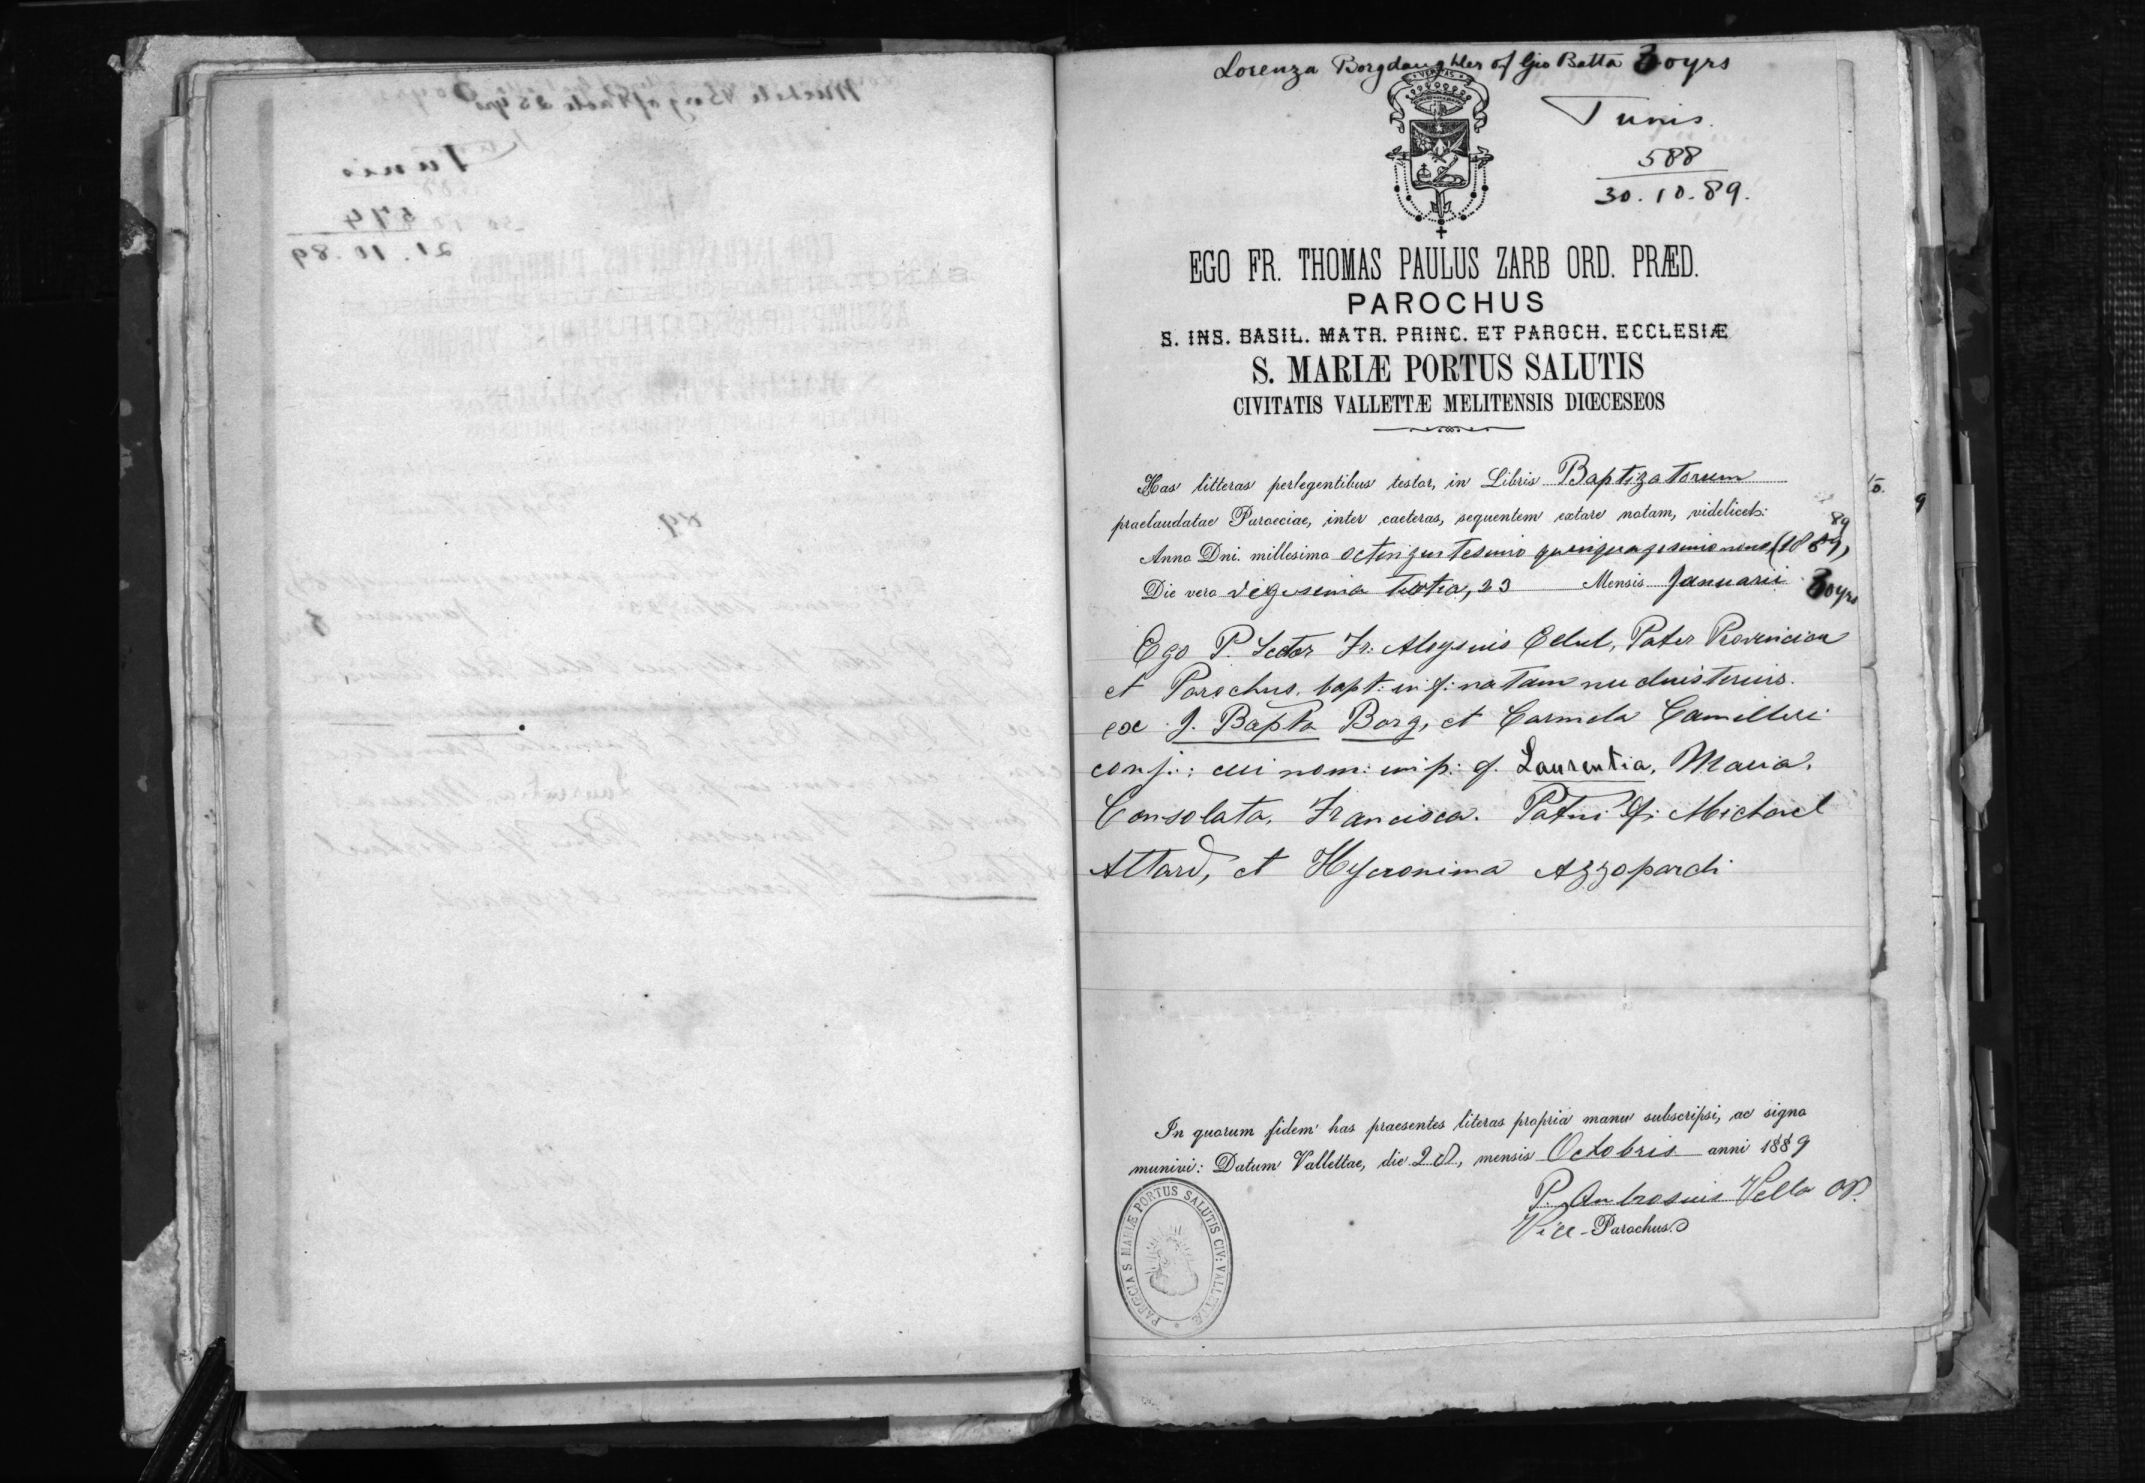 Tunis
574
21.10.89
Lorenza Borg daughter of Gio Batta 30yrs
VERITAS
Tunis.
588
30.10.89.
EGO FR. THOMAS PAULUS ZARB ORD. PRÆD.
PAROCHUS
S. INS. BASIL. MATR. PRINC. ET PAROCH. ECCLESIÆ
S. MARIÆ PORTUS SALUTIS
CIVITATIS VALLETTÆ MELITENSIS DIŒCESEOS
Has litteras perlegentibus testor, in Libris Baptizatorum
praelaudatae Paraeciae, inter caeteras, sequentem extare notam, videlicet:
89
Anno Dni. millesimo octingentesimo quinquagesimo nono (1859)
Die vero vigesima tertia, 23 Mensis Januarii 30yrs
Ego P. Lector Fr. Aloysius Pater
et Parochus bapt: inf: natam nudiustertius.
ex J. Bapta Borg, et Carmela Camilleri
conj:; cui nom: imp: f. Laurentia, Maria,
Consolata, Francisca. Patrini f: Michael
Attard, et Hyeronima Azzopardi
In quorum fidem has praesentes literas propria manu subscripsi, ac signo
munivi: Datum Vallettae, die 28, mensis Octobris anni 1889
P. Ambrosius Vella OP.
Vice-Parochus
PAROCIA S MARIÆ PORTUS SALUTIS CIV: VALLETTÆ